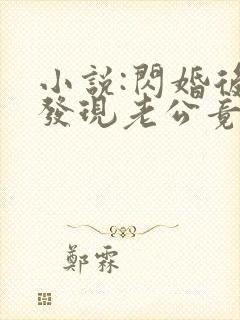 小說:閃婚後
發現老公竟
鄭霖